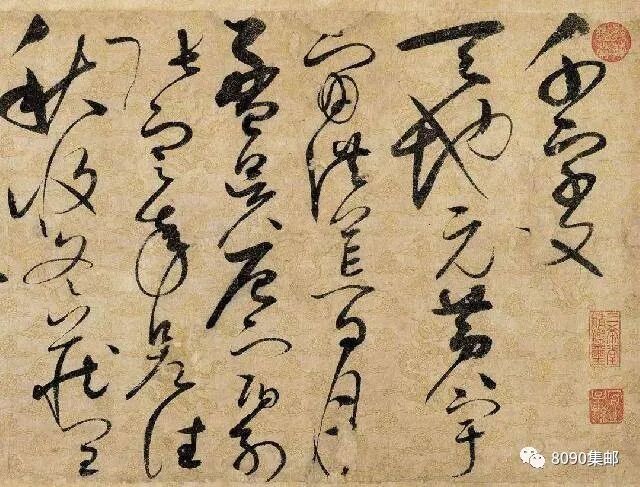 千字文
天地元黃宇
宙洪荒日月
盈昃辰宿列
張寒來暑往
秋收冬藏閏
8090集邮